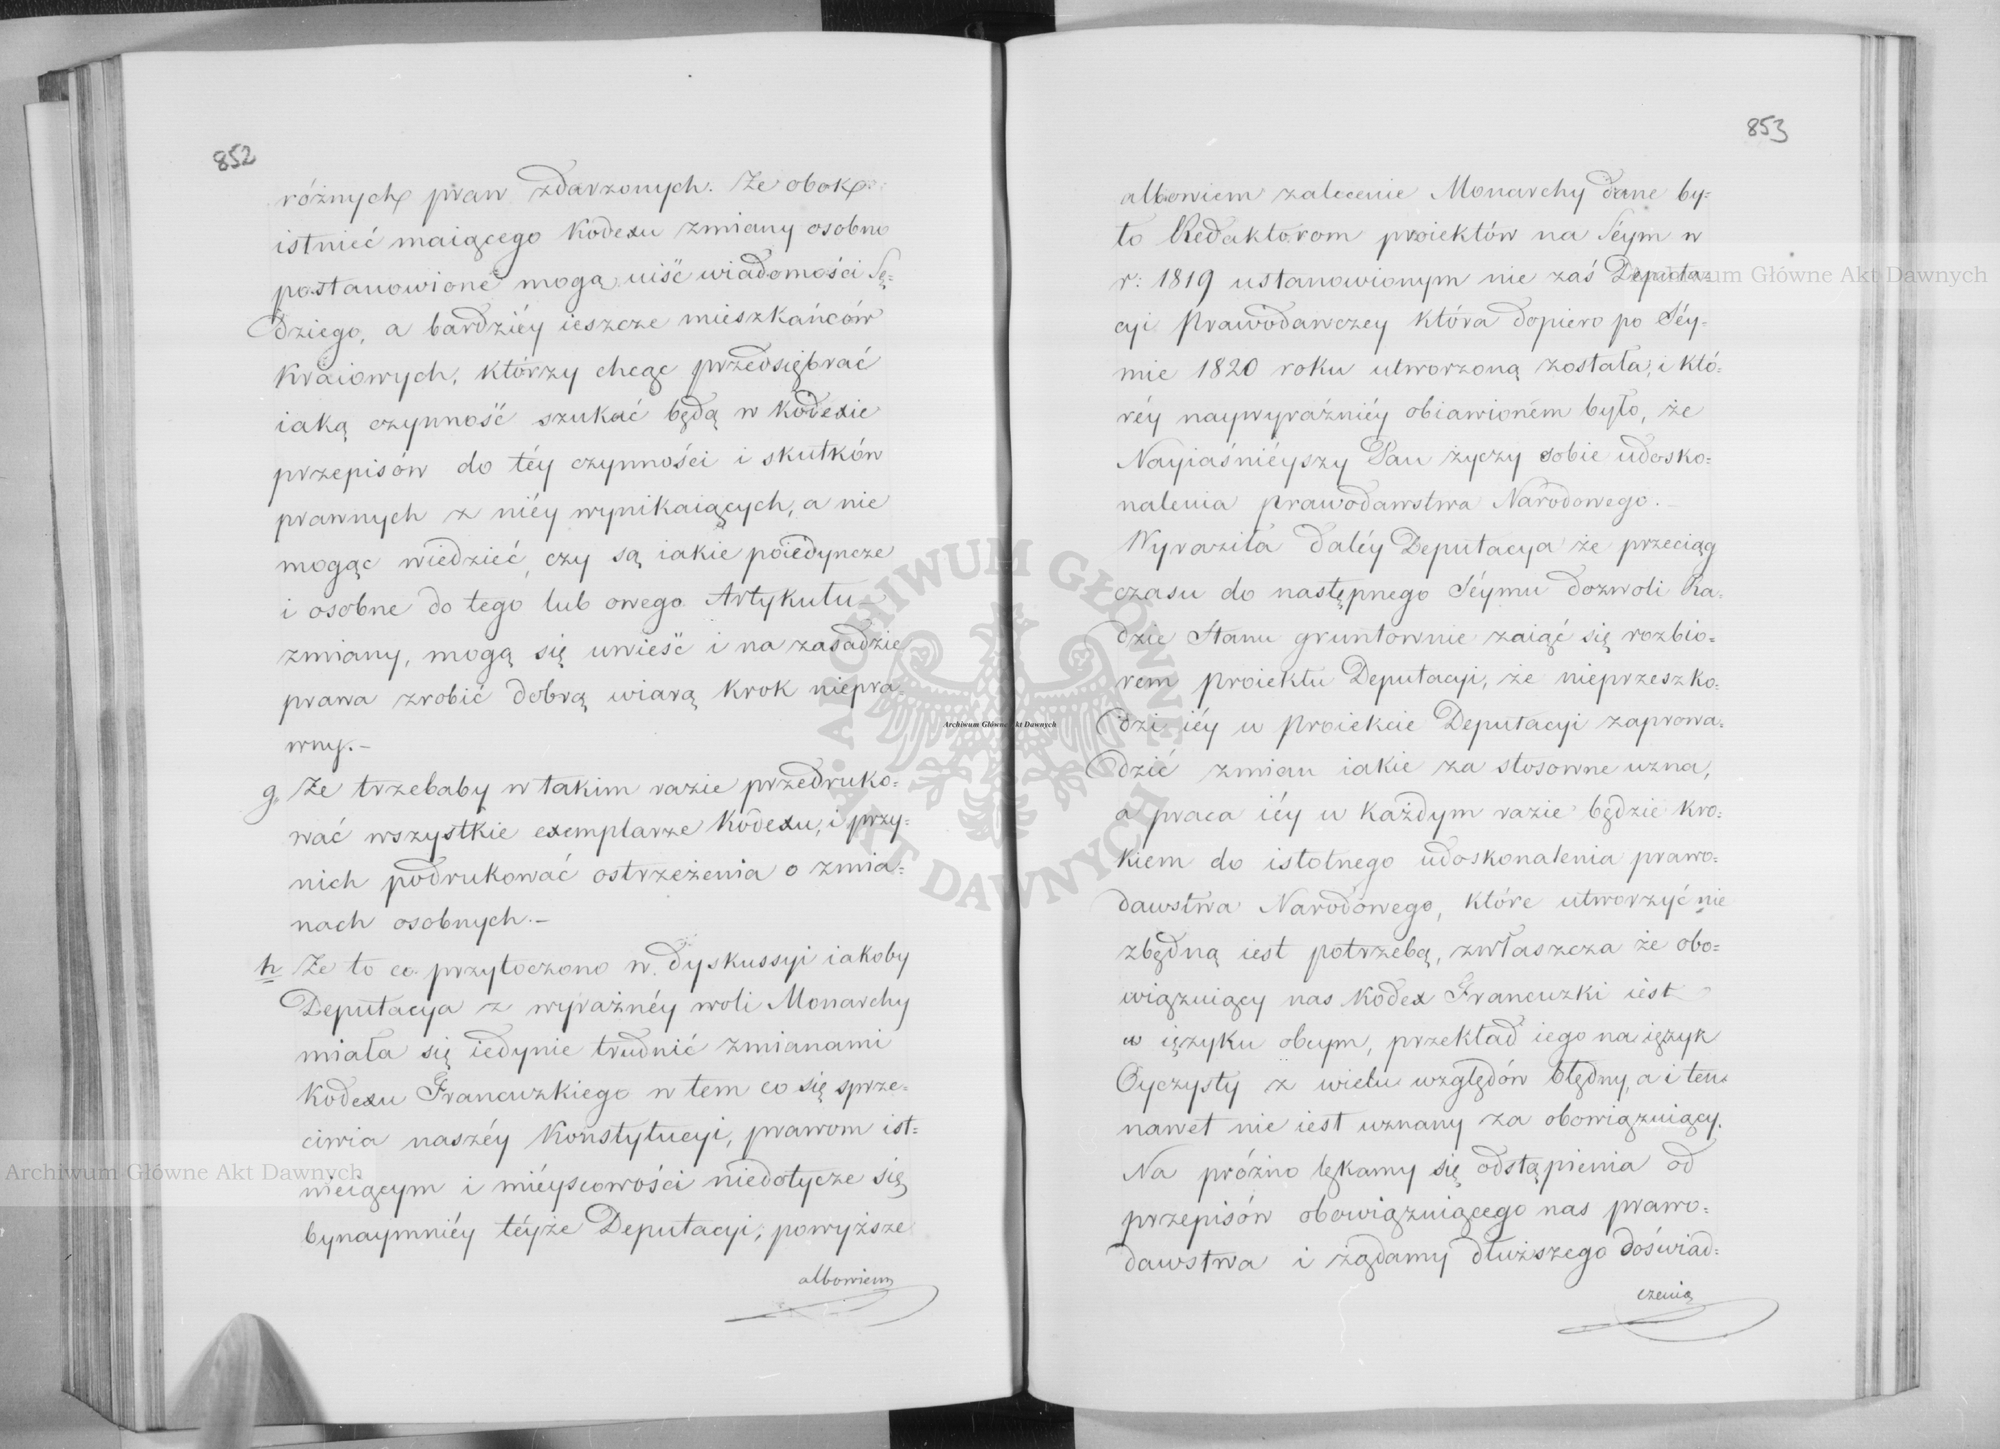 852
różnych praw zdarzonych. Że obok
istnieć maiącego Kodexu zmiany osobno
postanowione mogą uiść wiadomości Sę=
dziego, a bardziéy ieszcze mieszkańców
Kraiowych, którzy chcąc przedsiębrać
iaką czynność szukać będą w Kodexie
przepisów do téy czynności i skutków
prawnych z niéy wynikaiących, a nie
mogąc wiedzieć, czy są iakie poiedyncze
i osobne do tego lub owego Artykułu
zmiany, mogą się uwieść i na zasadzie
prawa zrobić dobrą wiarą krok niepra=
wny.–
g. Że trzebaby w takim razie przedruko=
wać wszystkie exemplarze Kodexu, i przy=
nich podrukować ostrzeżenia o zmia=
nach osobnych.–
h Że to co przytoczono w dyskussyi iakoby
Deputacya z wyraźnéy woli Monarchy
miała się iedynie trudnić zmianami
Kodexu Francuzkiego w tem co się sprze=
ciwia naszéy Konstytucyi, prawom ist=
nieiącym i mieyscowości niedotycze się
bynaymniéy téyże Deputacyi; powyższe
albowiem
853
albowiem zalecenie Monarchy dane by=
ło Redaktorom proiektów na Séym w
r: 1819 ustanowionym nie zaś Deputa=
cyi Prawodawczey która dopiero po Séy=
mie 1820 roku utworzoną została, i któ=
réy naywyraźniéy obiawioném było, że
Nayiaśniéyszy Pan życzy sobie udosko=
nalenia prawodawstwa Narodowego.–
Wyraziła daléy Deputacya że przeciąg
czasu do następnego Séymu dozwoli Ra=
dzie Stanu gruntownie zaiąć się rozbio=
rem proiektu Deputacyi, że nieprzeszko=
dzi iéy w proiekcie Deputacyi zaprowa=
dzić zmian iakie za stosowne uzna,
a praca iéy w każdym razie będzie kro=
kiem do istotnego udoskonalenia prawo=
dawstwa Narodowego, które utworzyć nie
zbędną iest potrzebą, zwłaszcza że obo=
wiązuiący nas Kodex Francuzki iest
w ięzyku obcym, przekład iego na ięzyk
Oyczysty z wielu względów błędny, a i ten
nawet nie iest uznany za obowiązuiący.
Na próżno lękamy się odstąpienia od
przepisów obowiązuiącego nas prawo=
dawstwa i żądamy dłuższego doświad=
czenia
Archiwum Główne Akt Dawnych
Archiwum Główne Akt Dawnych
Archiwum Główne Akt Dawnych
ARCHIWUM GŁÓWNE AKT DAWNYCH